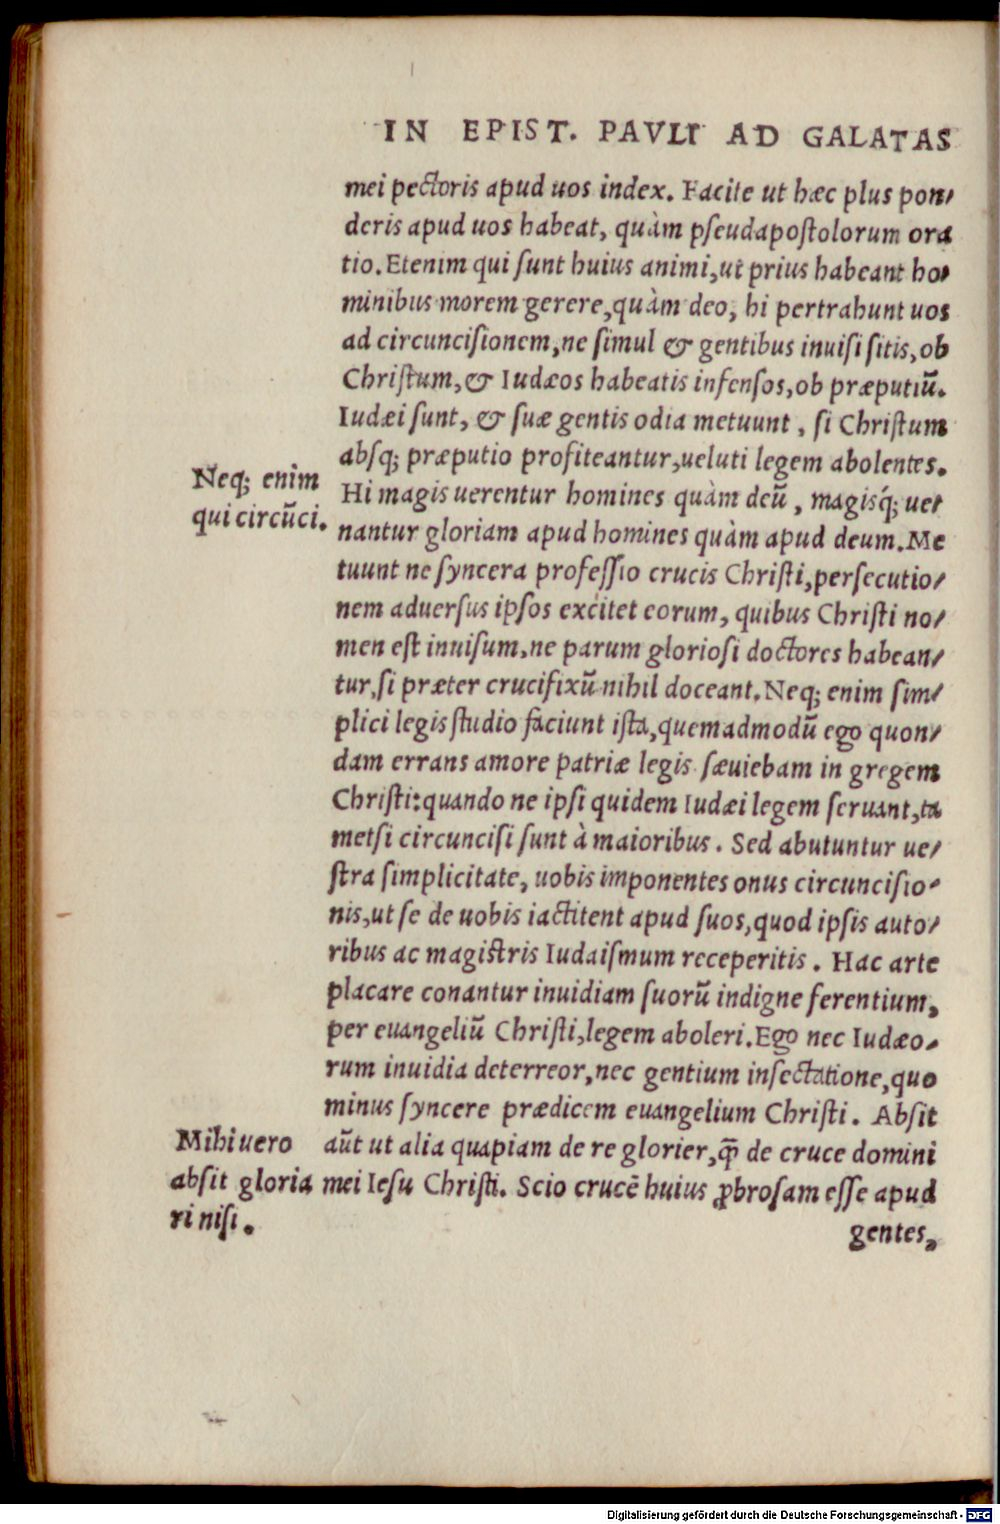 IN EPIST. PAVLI AD GALATAS
mei pectoris apud uos index. Facite ut hæc plus pon/
deris apud uos habeat, quàm pseudapostolorum ora
tio. Etenim qui sunt huius animi, ut prius habeant ho/
minibus morem gerere, quàm deo, hi pertrahunt uos
ad circuncisionem, ne simul & gentibus inuisi sitis, ob
Christum, & Iudæos habeatis infensos, ob præputiũ.
Iudæi sunt, & suæ gentis odia metuunt, si Christum
absq; præputio profiteantur, ueluti legem abolentes.
Neq; enim
qui circũci.
Hi magis uerentur homines quàm deũ, magisq́; ue/
nantur gloriam apud homines quàm apud deum. Me
tuunt ne syncera professio crucis Christi, persecutio/
nem aduersus ipsos excitet eorum, quibus Christi no/
men est inuisum, ne parum gloriosi doctores habean/
tur, si præter crucifixũ nihil doceant. Neq; enim sim/
plici legis studio faciunt ista, quemadmodũ ego quon/
dam errans amore patriæ legis sæuiebam in gregem
Christi: quando ne ipsi quidem Iudæi legem seruant, ta
metsi circuncisi sunt à maioribus. Sed abutuntur ue/
stra simplicitate, uobis imponentes onus circuncisio/
nis, ut se de uobis iactitent apud suos, quod ipsis auto/
ribus ac magistris Iudaismum receperitis. Hac arte
placare conantur inuidiam suorũ indigne ferentium,
per euangeliũ Christi, legem aboleri. Ego nec Iudæo/
rum inuidia deterreor, nec gentium insectatione, quo
minus syncere prædicem euangelium Christi. Absit
Mihi uero
absit gloria
ri nisi.
aũt ut alia quapiam de re glorier, q̃ de cruce domini
mei Iesu Christi. Scio crucẽ huius ꝓbrosam esse apud
gentes,
Digitalisierung gefördert durch die Deutsche Forschungsgemeinschaft - DFG